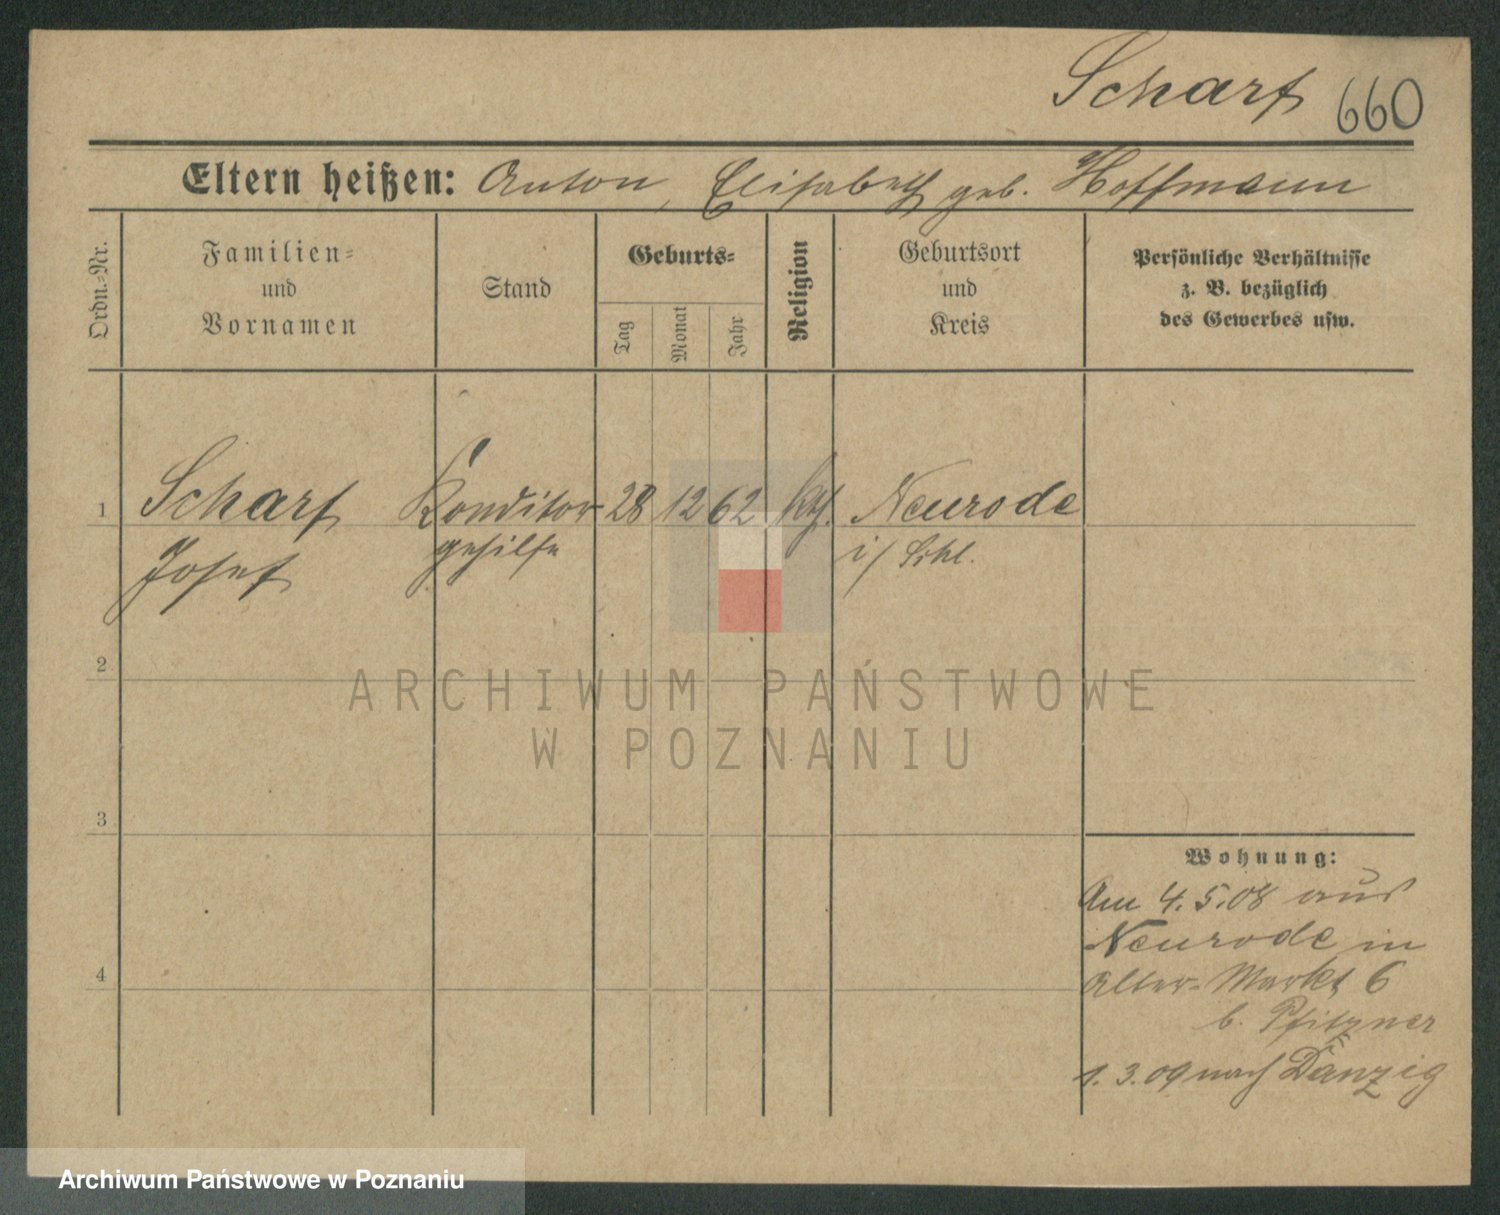 Scharf 660
Eltern heißen: Anton, Elisabeth geb. Hoffmann
Ordn.-Nr.
Familien-
und
Vornamen
Stand
Geburts-
Tag
Monat
Jahr
Religion
Geburtsort
und
Kreis
Persönliche Verhältnisse
z. B. bezüglich
des Gewerbes usw.
1 Scharf Konditor- 28 12 62 kth. Neurode
Josef gehilfe i/ Schl.
2
ARCHIWUM PAŃSTWOWE
W POZNANIU
3
Wohnung:
Am 4.5.08 aus
Neurode in
4
Alter-Markt 6
b. Pfitzner
1.3.09 nach Danzig
Archiwum Państwowe w Poznaniu